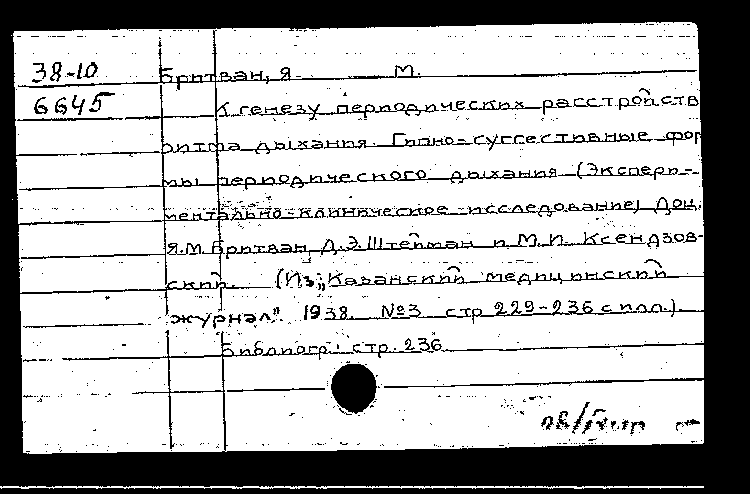 38-10 Бритван, Я. М.
6645 К генезу периодических расстройств
ритма дыхания. Гипно-суггестивные фор
мы периодического дыхания (Экспери-
ментально-клиническое исследование) Доц.
Я.М. Бритван, Д.Э. Штейман и М.И. Ксендзов-
ский. (Из „Казанский медицинский
журнал" 1938. №3 стр 229-236 с илл.).
Библиогр: стр. 236.